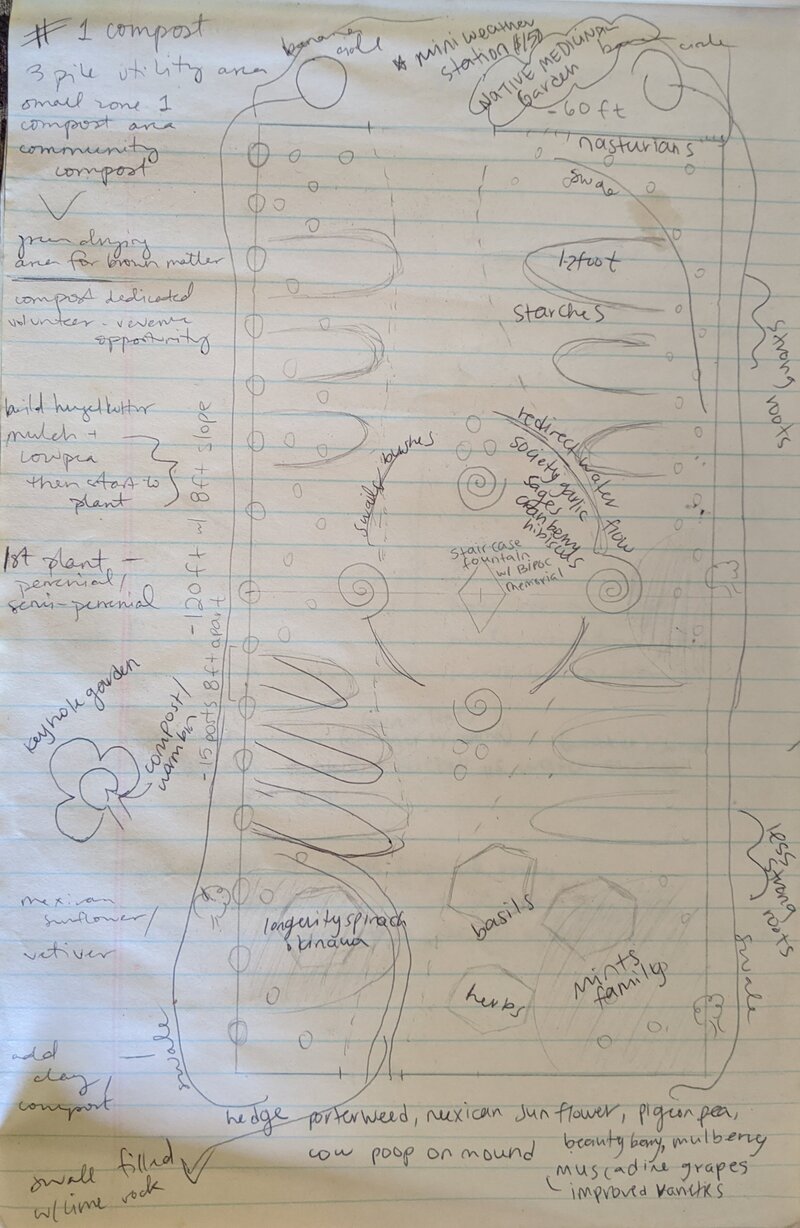 # 1 compost
3 pile utility area
small zone 1
compost area
community
compost
area for brown matter
compost dedicated
volunteer - revenue
opportunity
build
mulch +
cowpea
then start to
plant
1st plant -
perenial/
semi-perenial
keyhole garden
compost/
mexican
sunflower/
vetiver
add
clay/
compost
swale filled
w/ lime rock
banana
circle
* mini weather
station $150
NATIVE MEDICINAL
Garden
circle
-60ft
nasturians
swale
1-2foot
starches
strong roots
~120ft w/ 8ft slope
-15 posts 8ft apart
bushes
redirect water flow
society garlic
sages
cranberry
hibiscus
staircase
fountain
w/ BIPOC
memorial
less strong
roots
longevity spinach
okinawa
basils
herbs
mints
family
swale
swale
hedge porterweed, mexican sunflower, pigeon pea,
cow poop on mound
beauty berry, mulberry
muscadine grapes
improved varieties